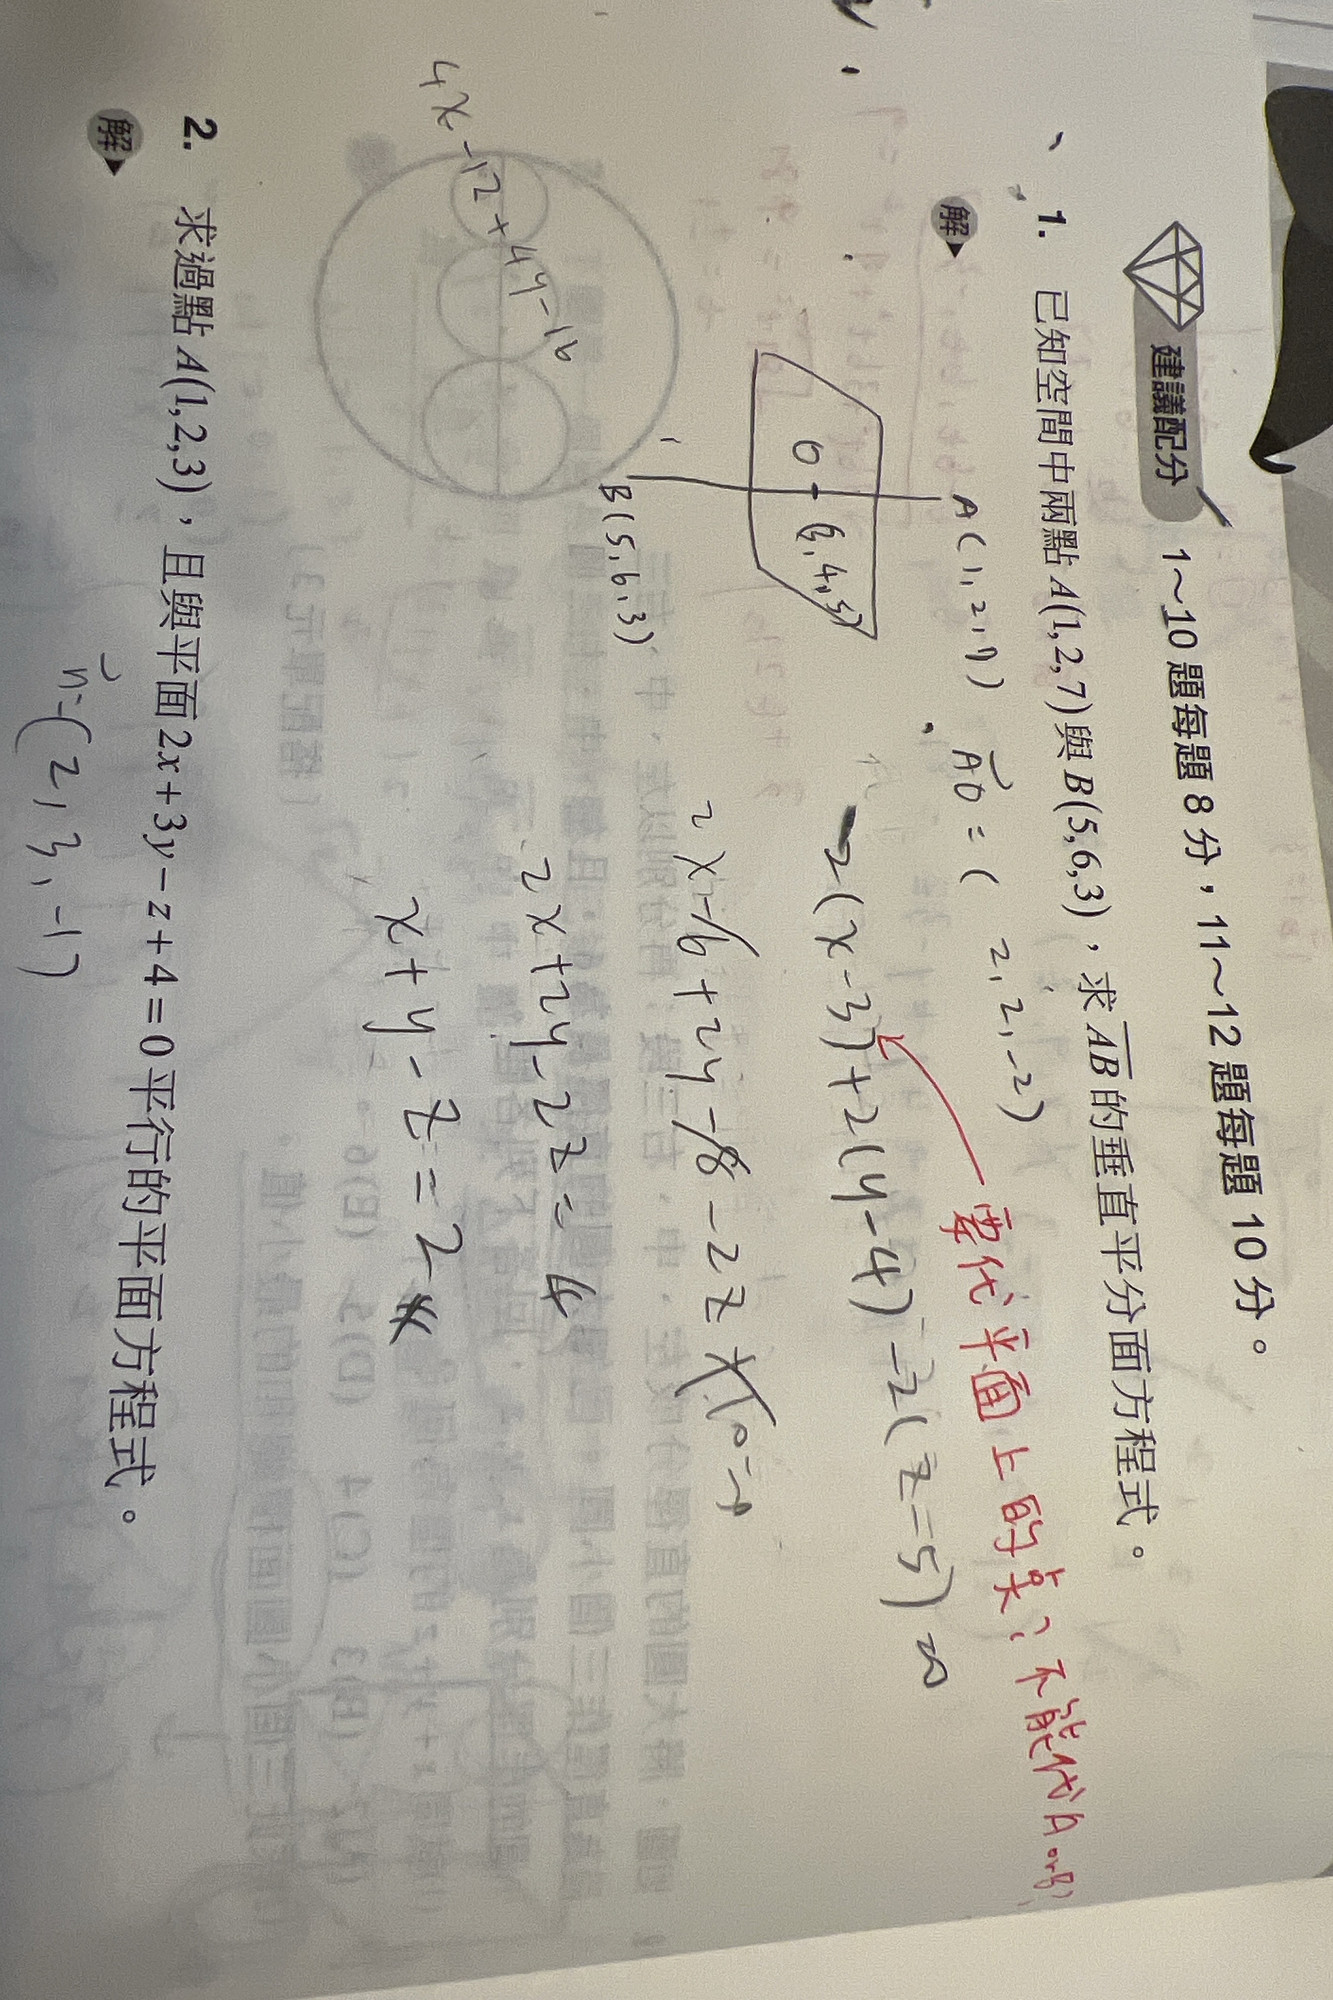 建議配分 1～10題每題8分，11～12題每題10分。
1. 已知空間中兩點A(1,2,7)與B(5,6,3)，求AB的垂直平分面方程式。
解
A(1,2,7)
AO=( 2,2,-2)
要代平面上的点；不能代A or B
O (3,4,5)
2(x-3)+2(y-4)-2(z-5)=0
B(5,6,3)
2x-6+2y-8-2z+10=0
2x+2y-2z=4
x+y-z=2
4x-12+4y-16
2. 求過點A(1,2,3)，且與平面2x+3y-z+4=0平行的平面方程式。
解
n=(2,3,-1)